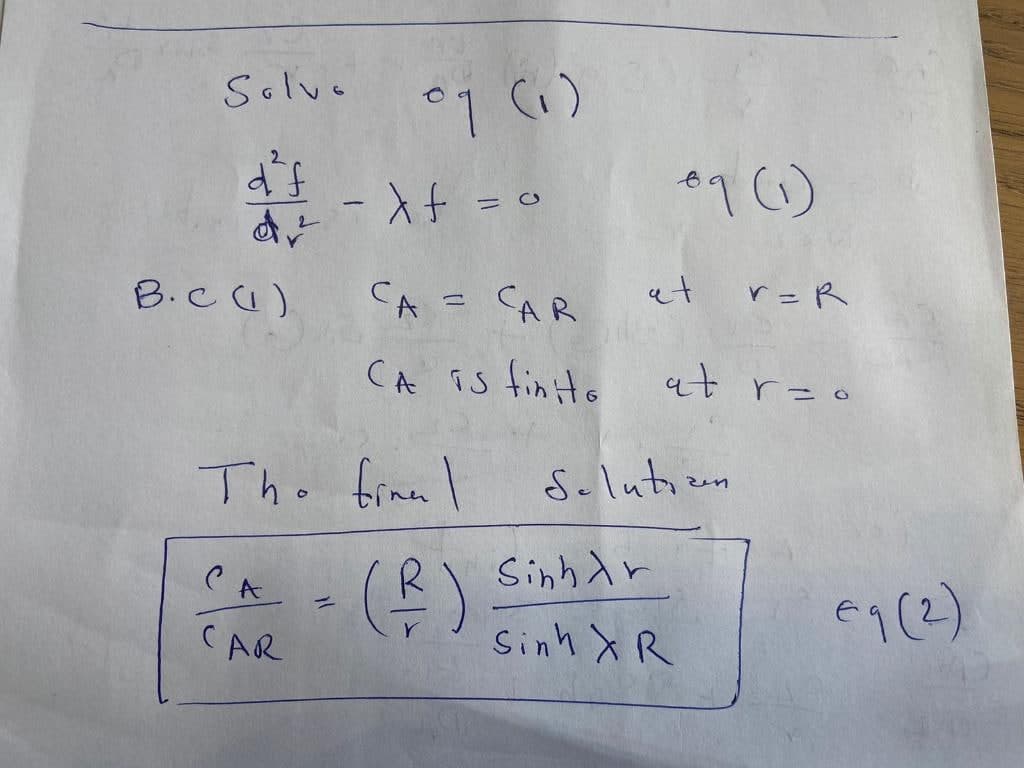 Solve eq (1)
d²f/dr² - λf = 0 eq (1)
B.C (1) CA = CAR at r = R
CA is finite at r = 0
The final Solution
CA/CAR = (R/r) Sinh λr / Sinh λR eq (2)